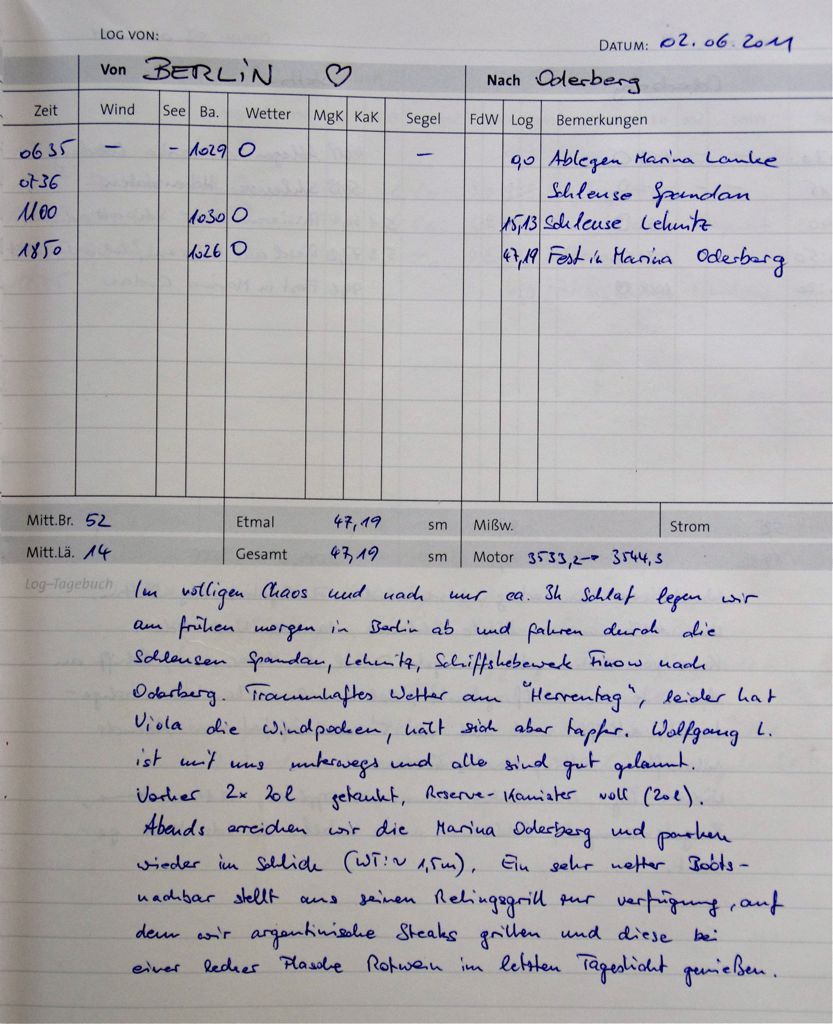 LOG VON:
DATUM: 02.06.2011
Von BERLIN ♡ Nach Oderberg
Zeit Wind See Ba. Wetter MgK KaK Segel FdW Log Bemerkungen
0635 – – 1029 O – 0,0 Ablegen Marina Lanke
0736 Schleuse Spandau
1100 1030 O 15,13 Schleuse Lehnitz
1850 1026 O 47,19 Fest in Marina Oderberg
Mitt.Br. 52 Etmal 47,19 sm Mißw. Strom
Mitt.Lä. 14 Gesamt 47,19 sm Motor 3533,2 → 3544,3
Log-Tagebuch Im völligen Chaos und nach nur ca. 3h Schlaf legen wir
am frühen morgen in Berlin ab und fahren durch die
Schleusen Spandau, Lehnitz, Schiffshebewerk Finow nach
Oderberg. Traumhaftes Wetter am "Herrentag", leider hat
Viola die Windpocken, hält sich aber tapfer. Wolfgang L.
ist mit uns unterwegs und alle sind gut gelaunt.
Vorher 2x 20l getankt, Reserve-Kanister voll (20l).
Abends erreichen wir die Marina Oderberg und parken
wieder im Schlick (WT: ~ 1,5m). Ein sehr netter Boots-
nachbar stellt uns seinen Relingsgrill zur verfügung, auf
dem wir argentinische Steaks grillen und diese bei
einer lecker Flasche Rotwein im letzten Tageslicht genießen.